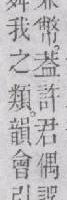 幣。葢許君偶誤
我之類。韻會引